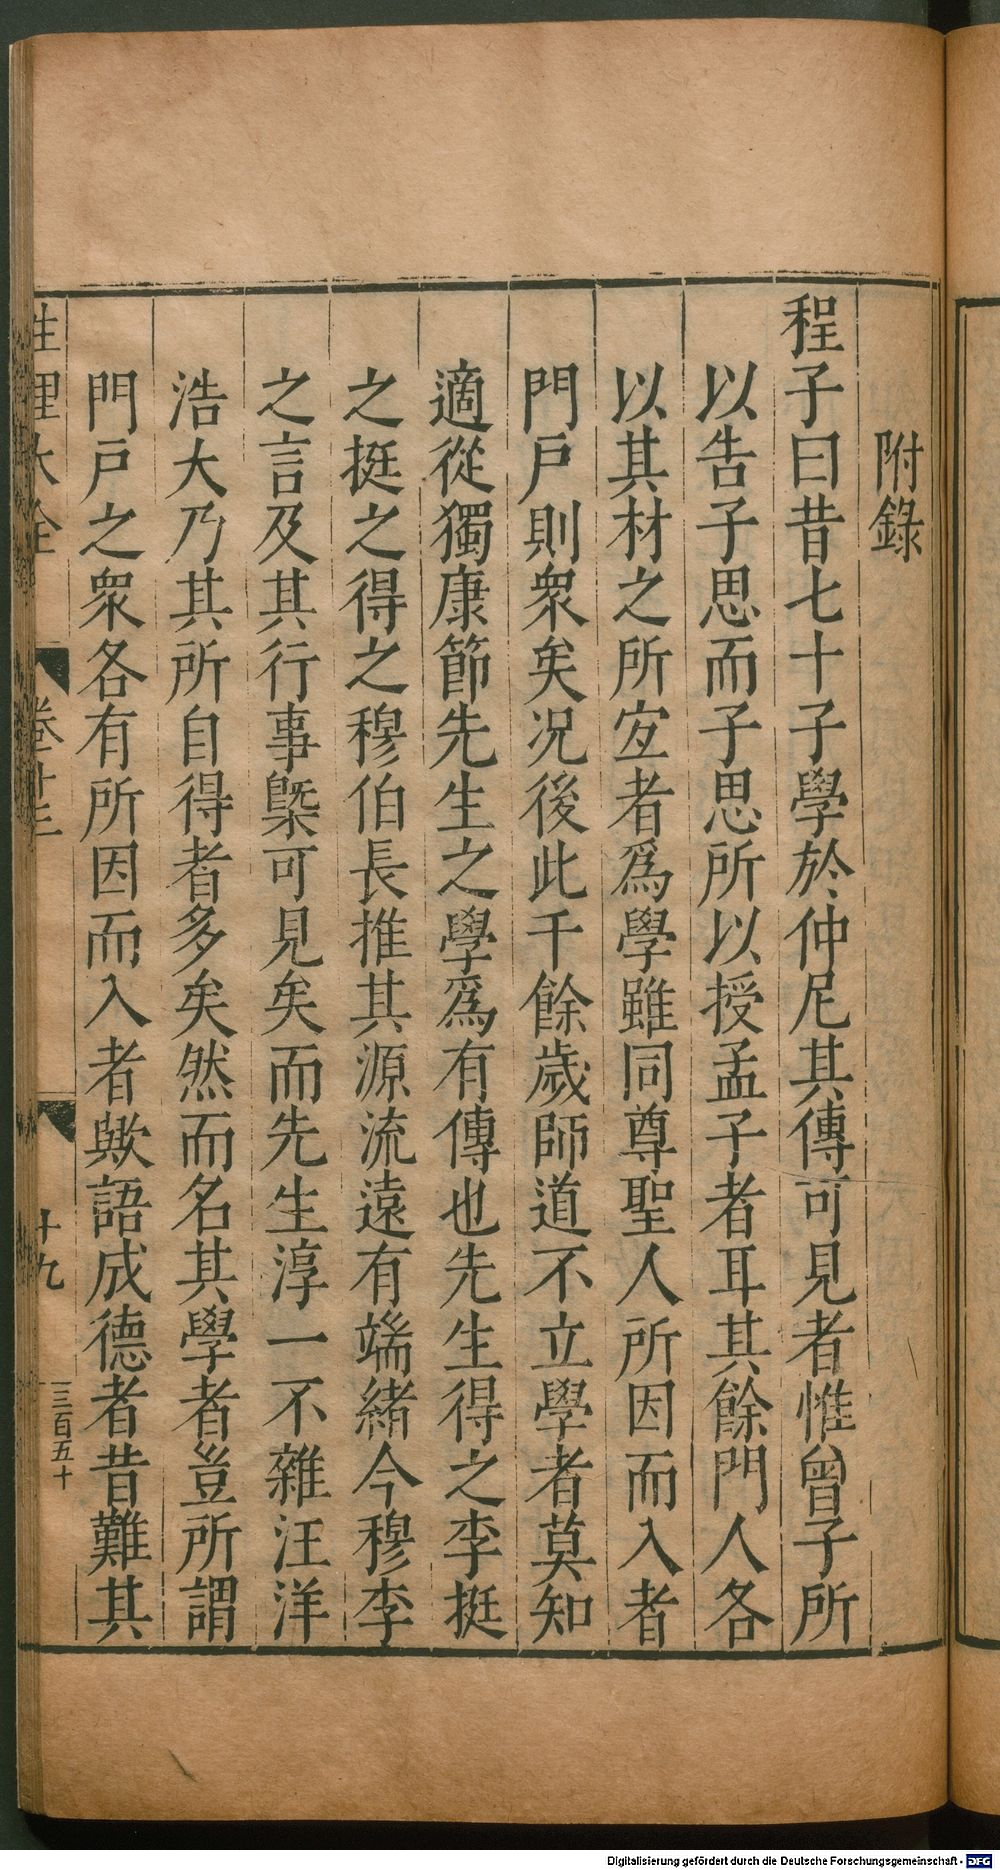 附錄
程子曰昔七十子學於仲尼其傳可見者惟曾子所
以告子思而子思所以授孟子者耳其餘門人各
以其材之所宐者爲學雖同尊聖人所因而入者
門戸則衆矣况後此千餘歲師道不立學者莫知
適從獨康節先生之學爲有傳也先生得之李挺
之挺之得之穆伯長推其源流遠有端緒今穆李
之言及其行事槩可見矣而先生淳一不雜汪洋
浩大乃其所自得者多矣然而名其學者豈所謂
門戸之衆各有所因而入者歟語成德者昔難其
性理大全 卷卅三 十九 三百五十
Digitalisierung gefördert durch die Deutsche Forschungsgemeinschaft - DFG